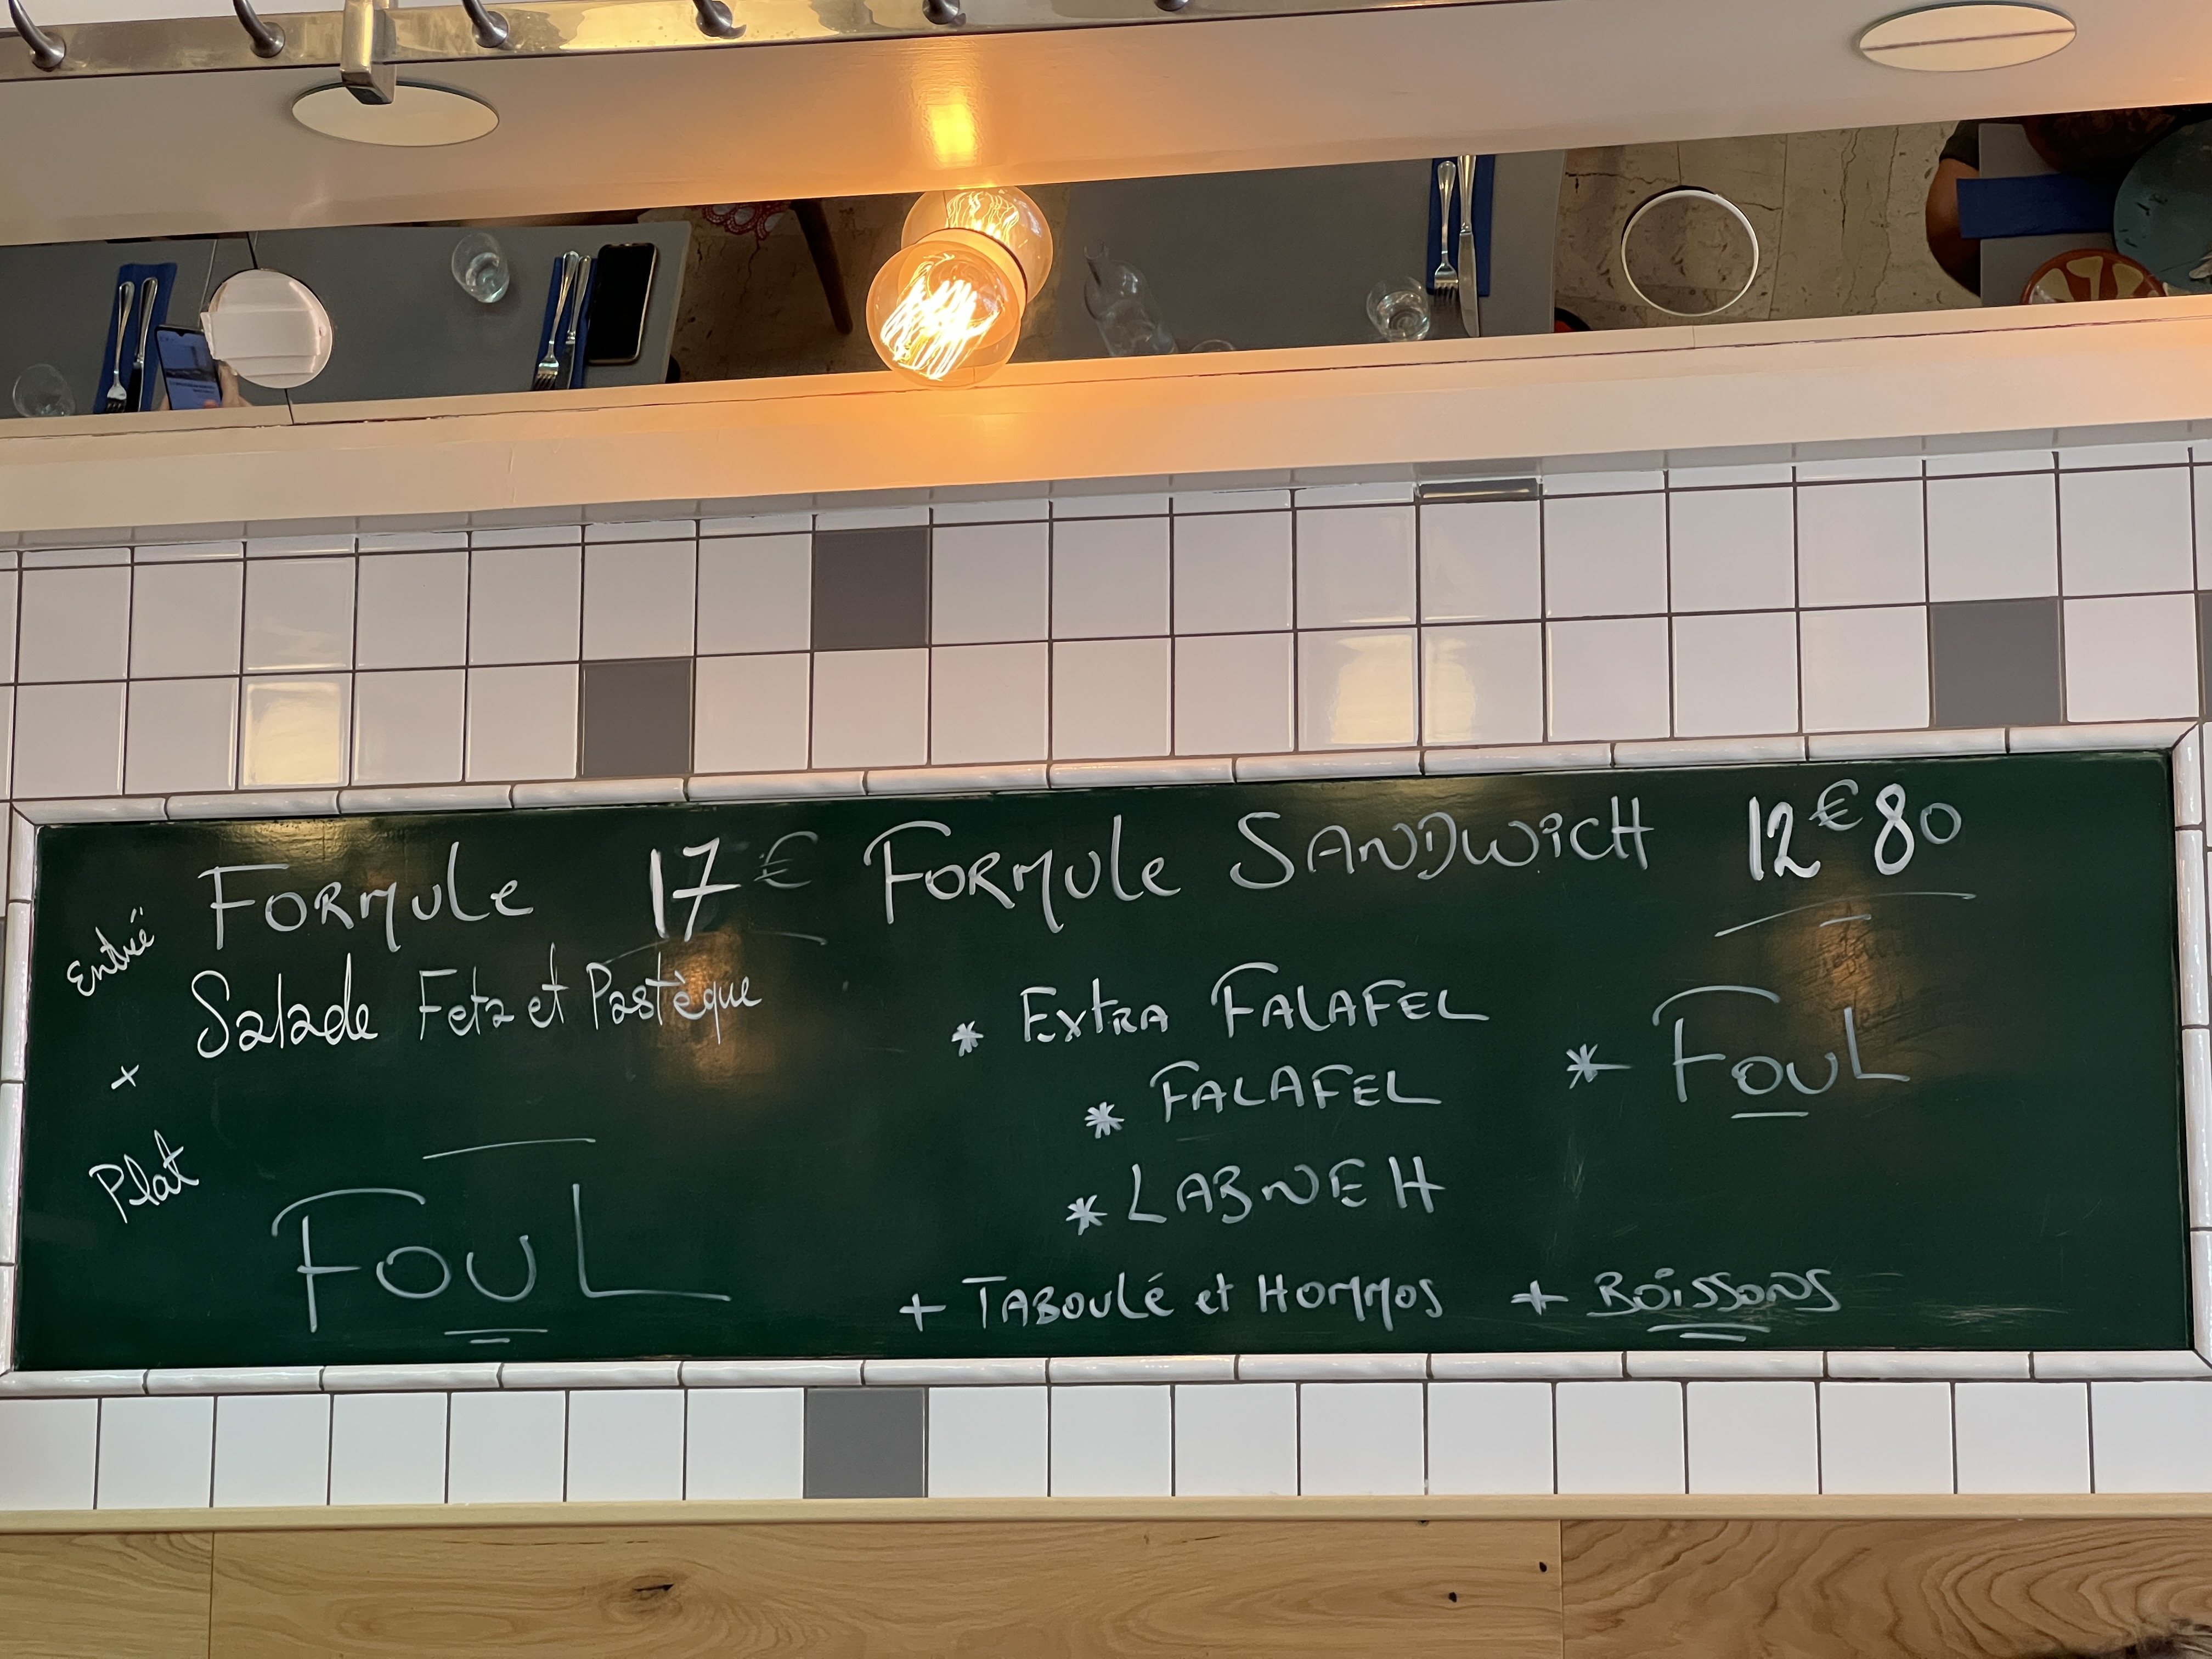 Formule 17€
Entrée
Salade Feta et Pastèque
+
Plat
FOUL
Formule SANDWiCH 12€80
* Extra FALAFEL
* FALAFEL
* LABNEH
* FOUL
+ TABoulé et HOMMOS + BOiSSONS